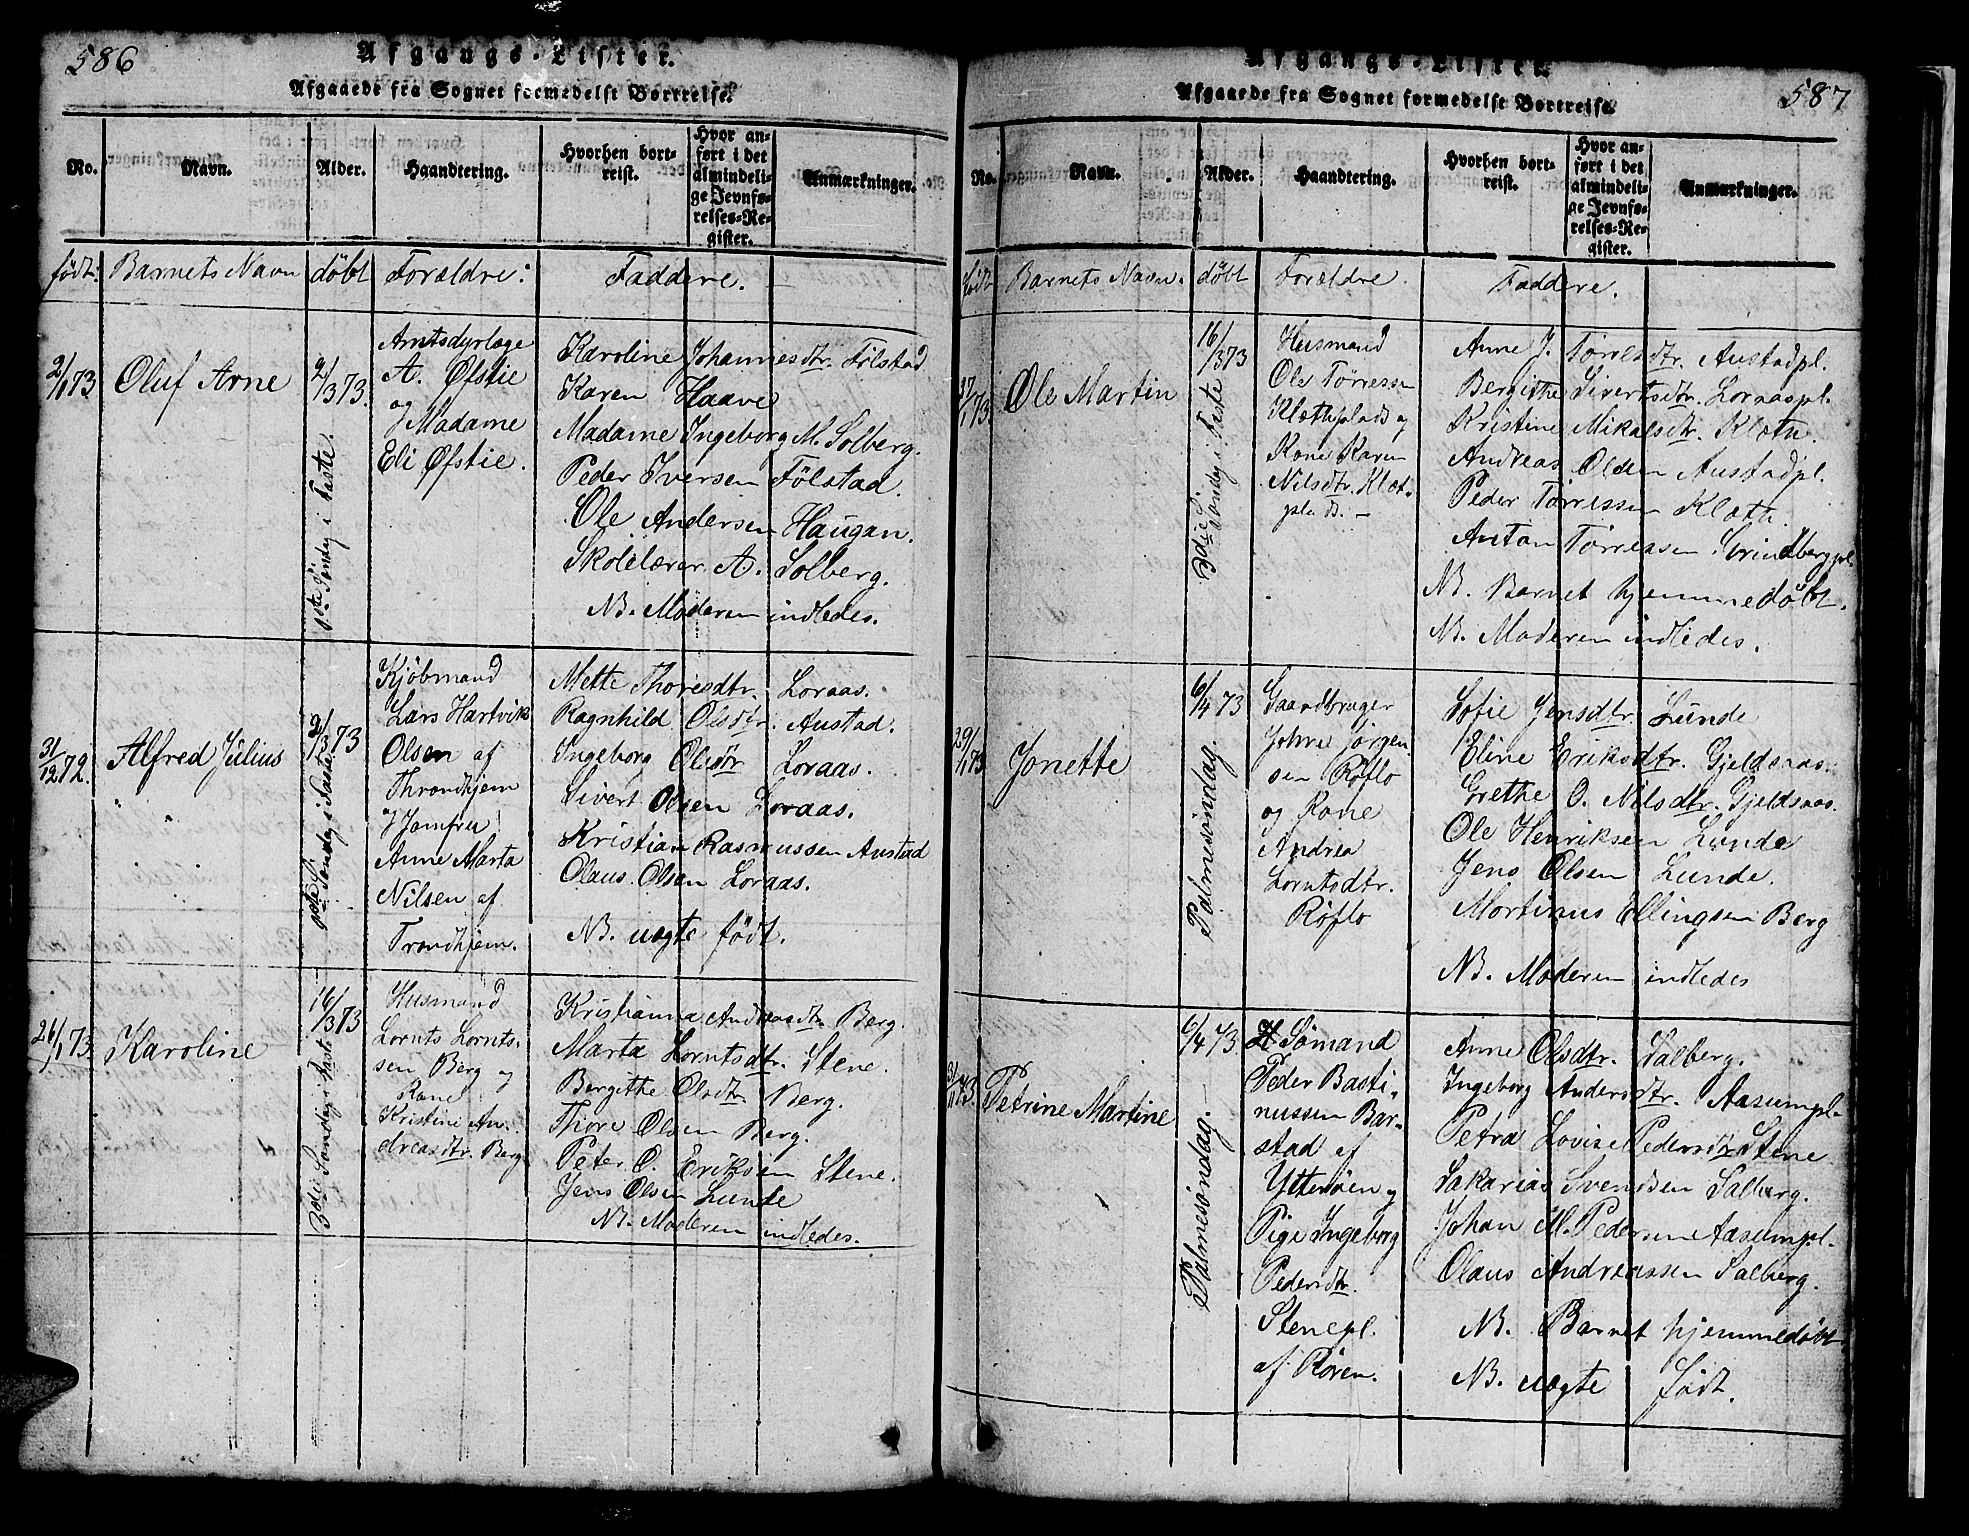 586
Afgangs-Lister.
Afgaaede fra Sognet formedelst Bortreise.
No. Navn. Alder. Haandtering. Hvorhen bortreist. Hvor anført i det almindelige Jevnførelses-Register. Anmærkninger.
født: Barnets Navn døbt Forældre: Faddere.
2/1 73 Oluf Arne 2/3 73.
1ste Søndag i Faste.
Amtsdyrlæge
A. Øfstie
og Madame
Eli Øfstie.
Karoline Johannesdtr. Fölstad
Karen Haave
Madame Ingeborg M. Solberg.
Peder Iversen Fölstad.
Ole Andersen Haugan.
Skolelærer A. Solberg.
NB. Moderen indledes.
31/12 72. Alfred Julius 2/3 73
1ste Søndag i Faste
Kjöbmand
Lars Hartvik
Olsen af
Throndhjem
og Jomfru
Anne Marta
Nilsen af
Trondhjem.
Mette Thoresdtr. Loraas.
Ragnhild Olsdtr. Austad.
Ingeborg Olsdtr Loraas.
Sivert Olsen Loraas.
Kristian Rasmussen Austad
Olaus Olsen Loraas.
NB. uægte født.
26/1 73. Karoline 16/3 73
3die Søndag i Faste
Husmand
Lornts Lornts-
sen Berg og
Kone
Kristine An-
dreasdtr. Berg
Kristianna Andreasdtr Berg.
Marta Lorntsdtr. Stene.
Bergithe Olsdtr Berg.
Thore Olsen Berg.
Peter O. Eriksen Stene.
Jens Olsen Lunde
NB. Moderen indledes.
587
Afgangs-Lister.
Afgaaede fra Sognet formedelst Bortreise.
No. Navn. Alder. Haandtering. Hvorhen bortreist. Hvor anført i det almindelige Jevnførelses-Register. Anmærkninger.
født Barnets Navn. døbt Forældre. Faddere.
27/1 73 Ole Martin 16/3 73
3die Søndag i Faste
Husmand
Ole Tørressen
Klæthplads og
Kone Karen
Nilsdtr. Klæt-
plads. -
Anne J. Tørresdtr. Austadpl.
Bergithe Sivertsdtr. Loraaspl.
Kristine Mikalsdtr. Klæth.
Andreas Olsen Austadpl.
Peder Tørressen Klæth.
Anton Tørresen Grindbergpl.
NB. Barnet hjemmedøbt.
NB. Moderen indledes.
29/1 73 Jonette 6/4 73
Palmesøndag.
Gaardbruger
Johne Jörgen-
sen Røflo
og Kone
Andrea
Lorntsdtr.
Røflo
Sofie Jensdtr. Lunde
Eline Eriksdtr. Gjeldsaas.
Grethe O. Nilsdtr. Gjeldsaas.
Ole Henriksen Lunde
Jens Olsen Lunde.
Martinus Ellingsen Berg
NB. Moderen indledes
31/1 73. Petrine Martine 6/4 73
Palmesøndag.
Sømand
Peder Basti-
nussen Bar-
stad af
Ytterøen og
Pige Ingeborg
Pedersdtr.
Stenepl.
af Røren.
Anne Olsdtr. Salberg.
Ingeborg Andersdtr. Aasumpl.
Petra Lovise Pedersdtr Stene
Sakarias Svendsen Salberg.
Johan M. Pedersen Aasumpl.
Olaus Andreassen Salberg.
NB. Barnet hjemmedøbt
NB. uægte født.